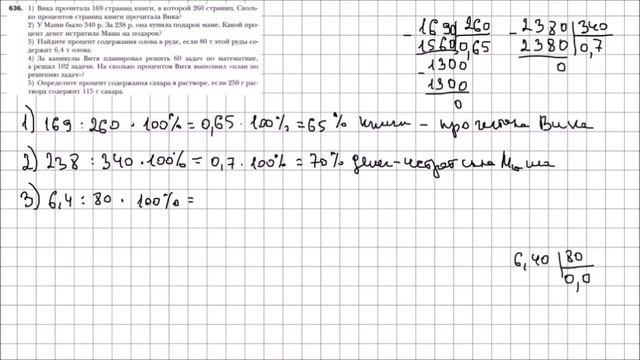 636. 1) Вика прочитала 169 страниц книги, в которой 260 страниц. Сколь-
ко процентов страниц книги прочитала Вика?
2) У Маши было 340 р. За 238 р. она купила подарок маме. Какой про-
цент денег истратила Маша на подарок?
3) Найдите процент содержания олова в руде, если 80 т этой руды со-
держит 6,4 т олова.
4) За каникулы Витя планировал решить 60 задач по математике,
а решил 102 задачи. На сколько процентов Витя выполнил «план по
решению задач»?
5) Определите процент содержания сахара в растворе, если 250 г рас-
твора содержит 115 г сахара.
1690 260
1560 0,65
1300
1300
0
2380 340
2380 0,7
0
1) 169 : 260 · 100% = 0,65 · 100% = 65% книги - прочитала Вика
2) 238 : 340 · 100% = 0,7 · 100% = 70% денег - истратила Маша
3) 6,4 : 80 · 100% =
6,40 80
0,0